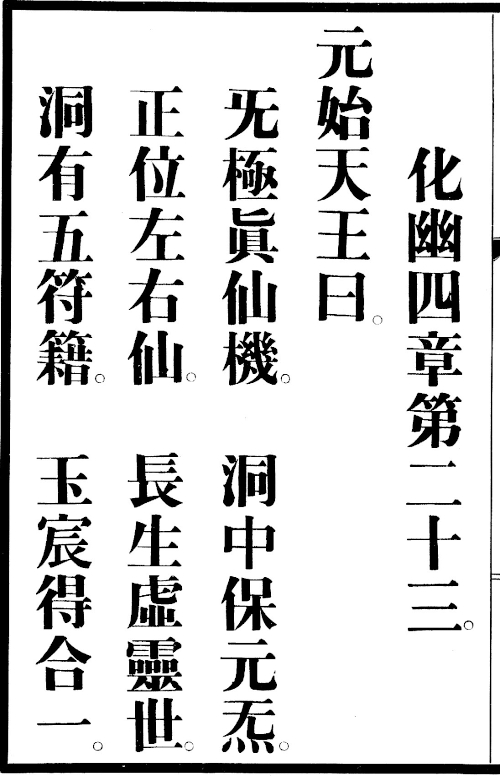 化幽四章第二十三。
元始天王曰。
旡極眞仙機。 洞中保元炁。
正位左右仙。 長生虛靈世。
洞有五符籍。 玉宸得合一。